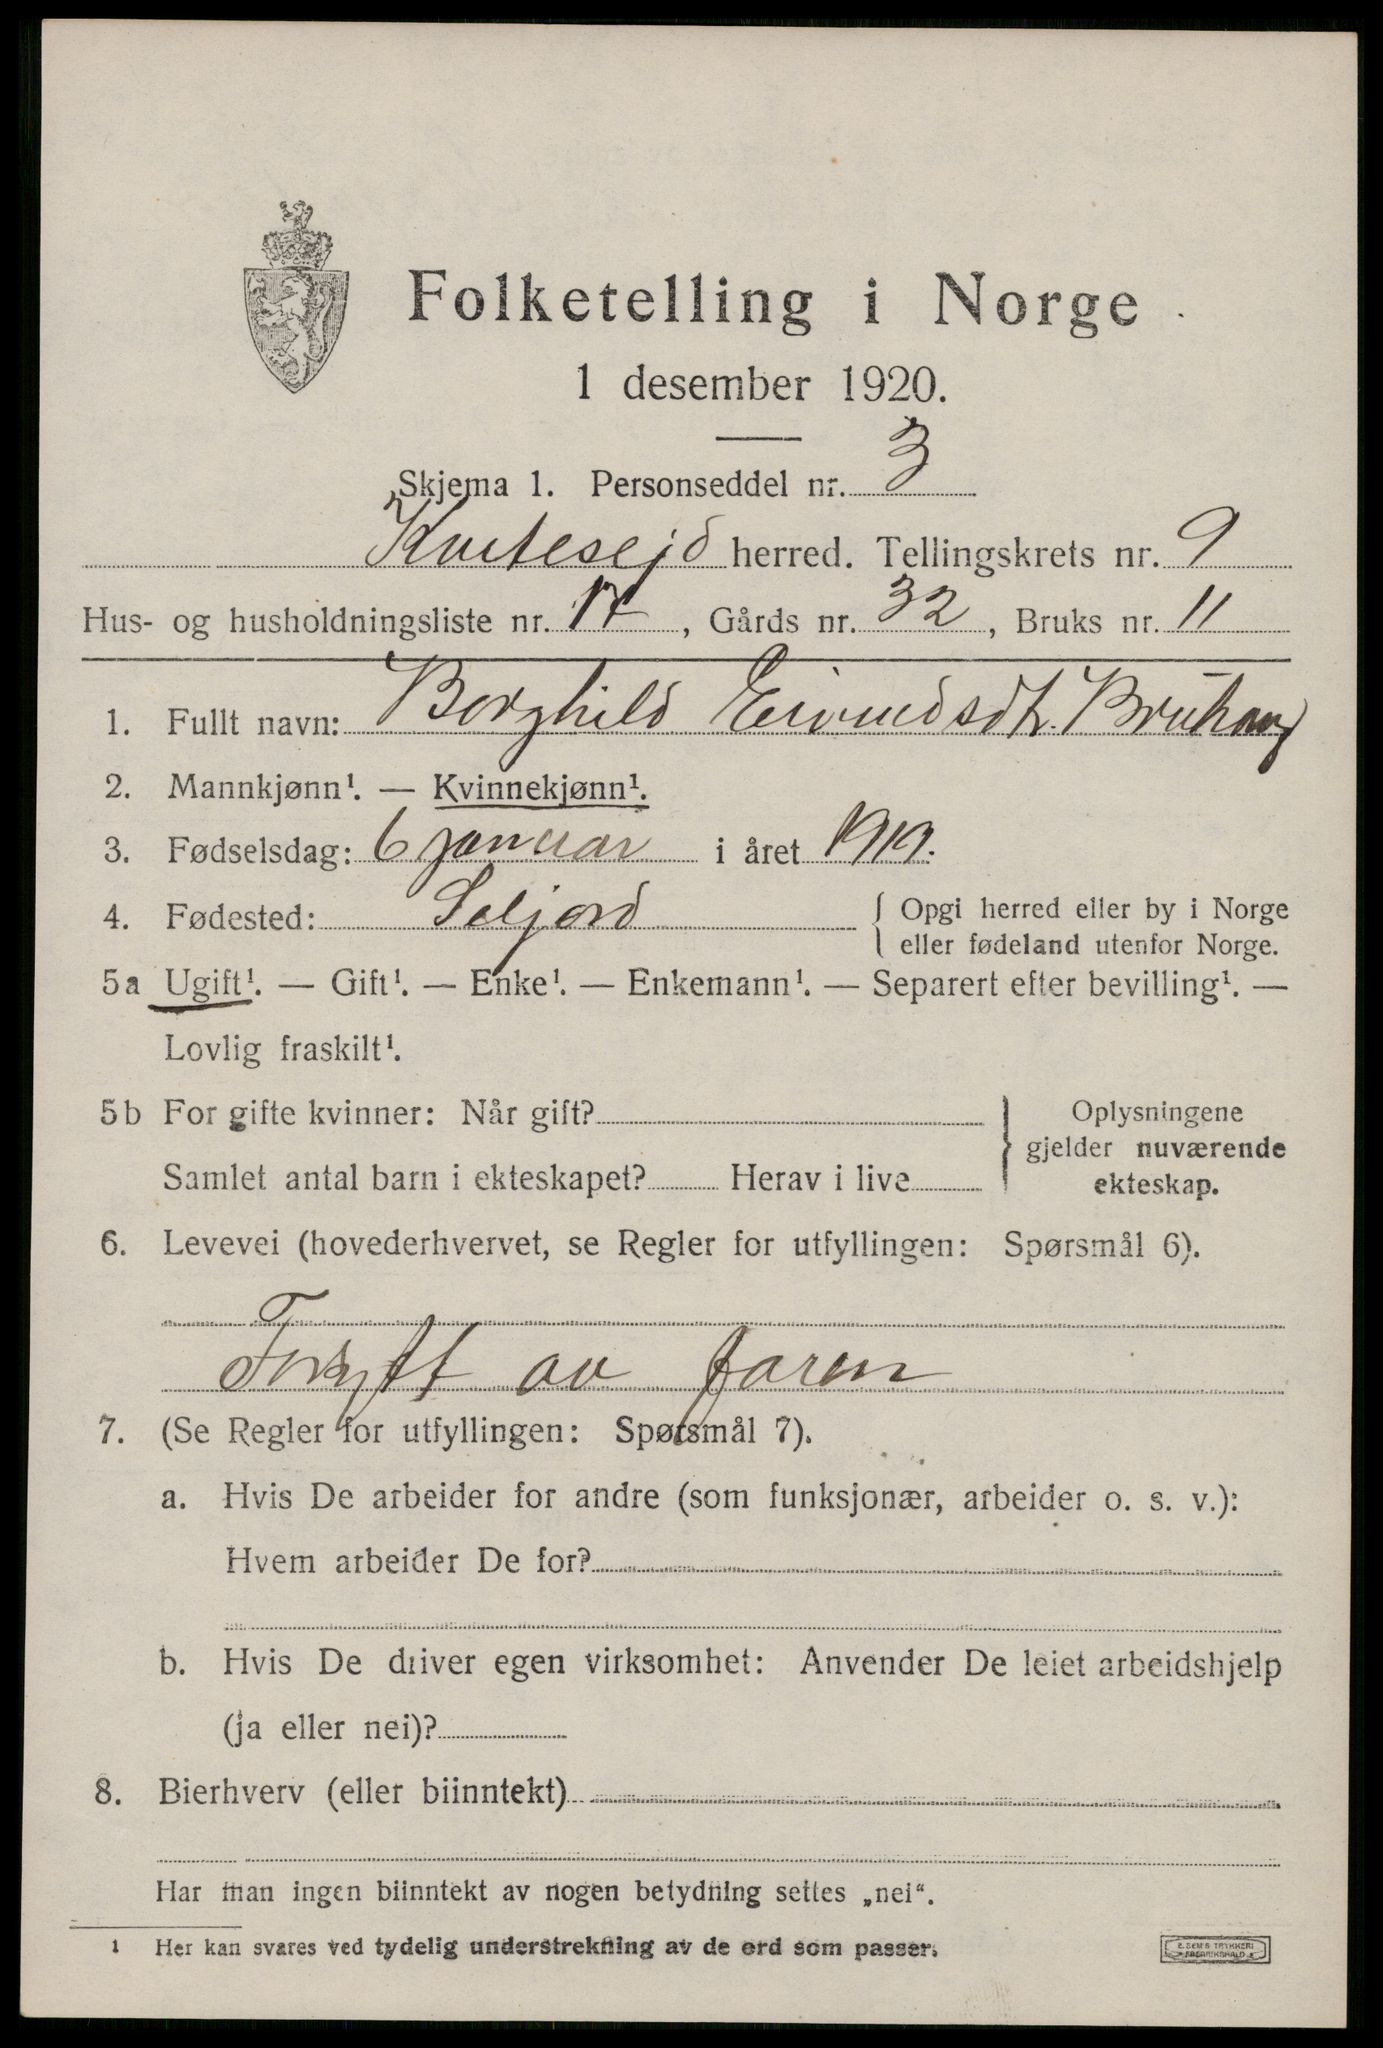 Folketelling i Norge
1 desember 1920.
Skjema 1. Personseddel nr. 3
Kvitesejd herred. Tellingskrets nr. 9
Hus- og husholdningsliste nr. 17, Gårds nr. 32, Bruks nr. 11
1. Fullt navn: Borghild Eivindsdt. Bruhaug
2. Mannkjønn¹. — Kvinnekjønn¹.
3. Fødselsdag: 6 januar i året 1919.
4. Fødested: Seljord { Opgi herred eller by i Norge
eller fødeland utenfor Norge.
5a Ugift¹. — Gift¹. — Enke¹. — Enkemann¹. — Separert efter bevilling¹. —
Lovlig fraskilt¹.
5b For gifte kvinner: Når gift?
Samlet antal barn i ekteskapet? Herav i live
} Oplysningene
gjelder nuværende
ekteskap.
6. Levevei (hovederhvervet, se Regler for utfyllingen: Spørsmål 6).
Forsytt av faren
7. (Se Regler for utfyllingen: Spørsmål 7).
a. Hvis De arbeider for andre (som funksjonær, arbeider o. s. v.):
Hvem arbeider De for?
b. Hvis De driver egen virksomhet: Anvender De leiet arbeidshjelp
(ja eller nei)?
8. Bierhverv (eller biinntekt)
Har man ingen biinntekt av nogen betydning settes „nei“.
1 Her kan svares ved tydelig understrekning av de ord som passer.
E. SEM'S TRYKKERI
FREDRIKSHALD